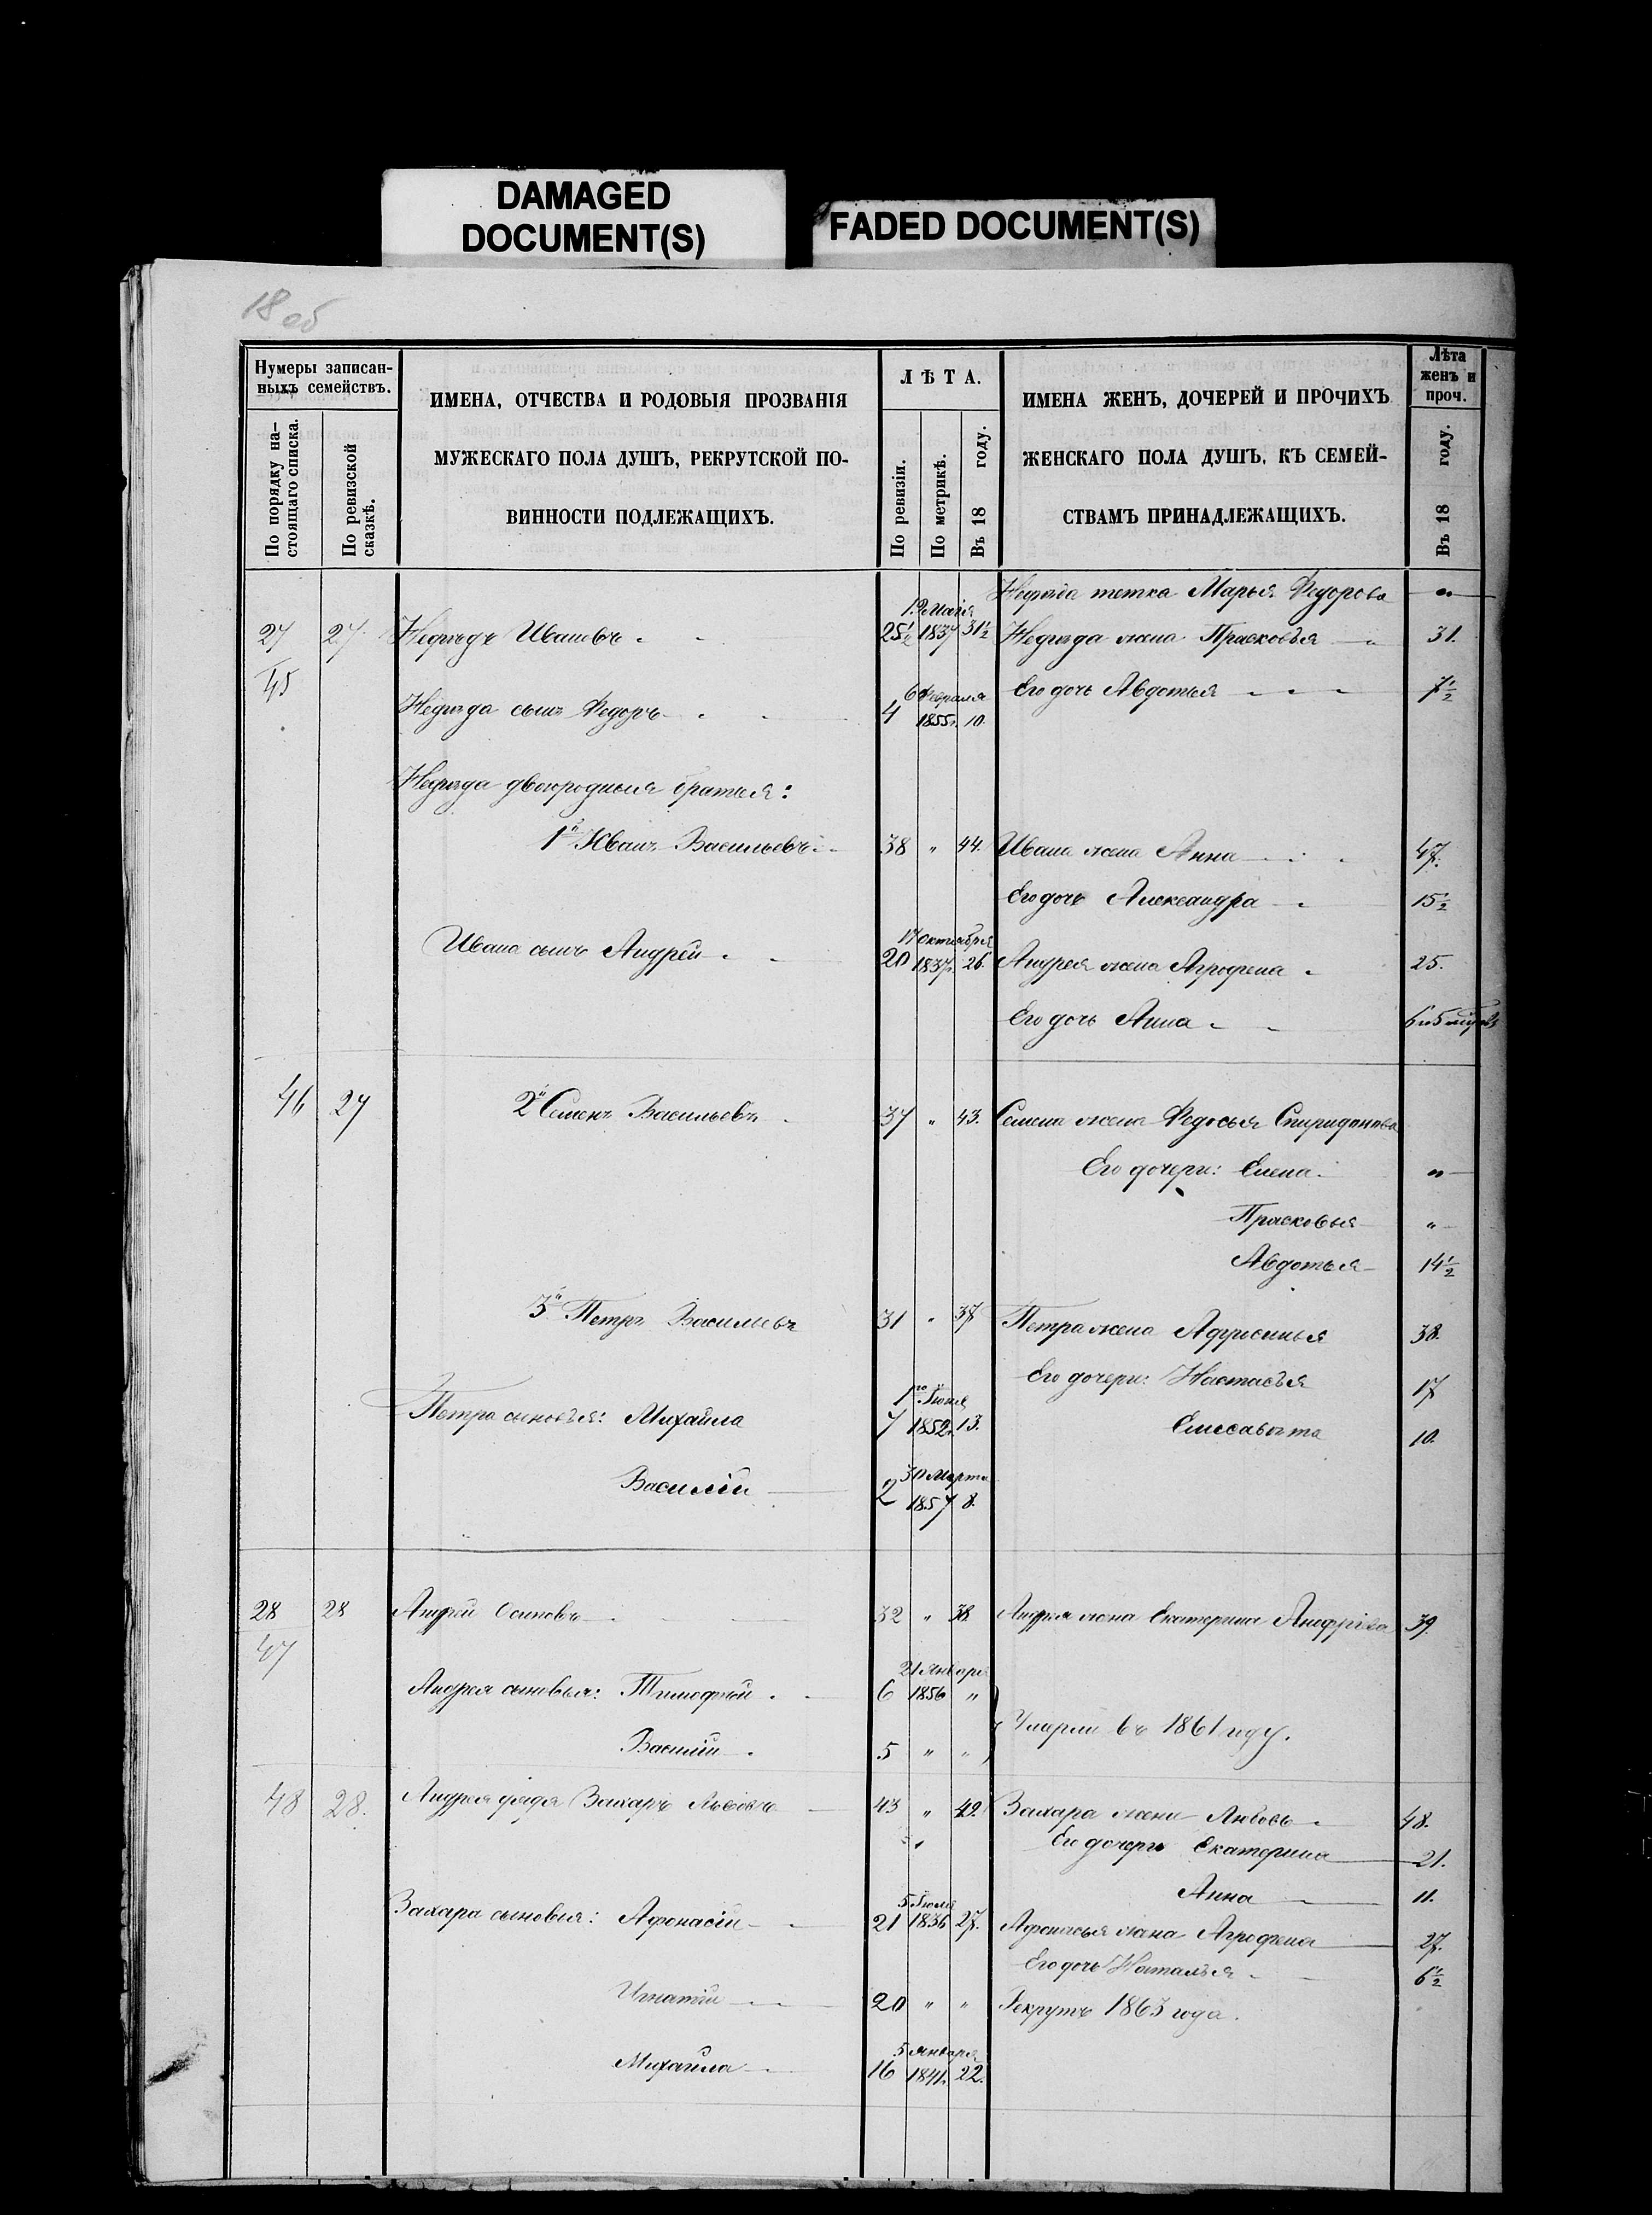 DAMAGED
DOCUMENT(S)
FADED DOCUMENT(S)
18 об
Нумеры записан-
ныхъ семействъ.
По порядку на-
стоящаго списка.
По ревизской
сказкѣ.
ИМЕНА, ОТЧЕСТВА И РОДОВЫЯ ПРОЗВАНІЯ
МУЖЕСКАГО ПОЛА ДУШЪ, РЕКРУТСКОЙ ПО-
ВИННОСТИ ПОДЛЕЖАЩИХЪ.
ЛѢТА.
По ревизіи.
По метрикѣ.
Въ 18 году.
ИМЕНА ЖЕНЪ, ДОЧЕРЕЙ И ПРОЧИХЪ
ЖЕНСКАГО ПОЛА ДУШЪ, КЪ СЕМЕЙ-
СТВАМЪ ПРИНАДЛЕЖАЩИХЪ.
Лѣта
женъ и
проч.
Въ 18 году.
тетка Марья Федорова „
27 27 Ивановъ 25½ 12 Маія 1837 31½ жена Прасковья 31.
45
Его дочь Авдотья 7½
сынъ Федоръ 4 6 Февраля 1855г. 10.
двоюродныя братья:
1й Иванъ Васильевъ 38 „ 44. Ивана жена Анна 47.
Его дочь Александра 15½
Ивана сынъ Андрей 20 17 октября 1837г. 26. Андрея жена Агрофена 25.
Его дочь Анна 6
46 27 2й Семенъ Васильевъ 37 „ 43. Семена жена Федосья Спиридонова
Его дочери: Елена „
Прасковья „
Авдотья 14½
3й Петръ Васильевъ 31 „ 37 Петра жена 38.
Его дочери: Настасья 17
Петра сыновья: Михаила 7 1го 1852г. 13. Елисавета 10.
Василій 2 30 Марта 1857 8.
28 28 Андрей Осиповъ 32 „ 38 Андрея жена Екатерина 39.
47
Андрея сыновья: Тимофѣй 6 21 Января 1856 „
Умерли въ 1861 году.
Василій 5 „ „
48 28. Андрея дядя Захаръ 43 „ 49. Захара жена Любовь 48.
Его дочери Екатерина 21.
Анна 11.
Захара сыновья: Афонасій 21 5 Іюля 1836 27. Афонасья жена Агрофена 27.
Его дочь Наталья 6½
Игнатій 20 „ „ Рекрутъ 1863 года.
Михаила 16 5 Января 1841г. 22.